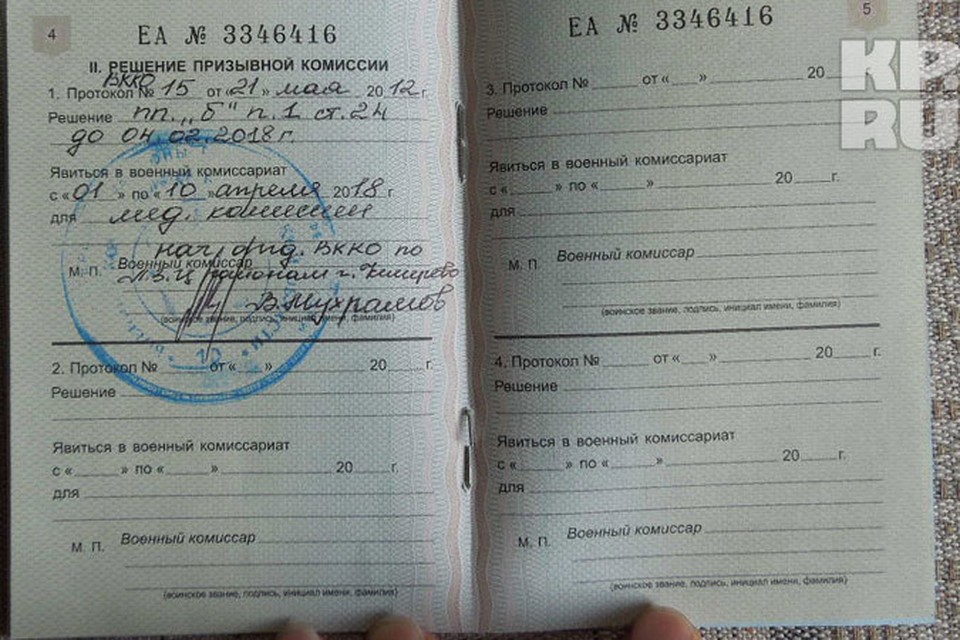 4
ЕА № 3346416
II. РЕШЕНИЕ ПРИЗЫВНОЙ КОМИССИИ
ВККО
1. Протокол № 15 от «21» мая 2012 г.
Решение пп. „б" п.1 ст.24
до 04.02.2018 г.
Явиться в военный комиссариат
с «01» по «10» апреля 2018 г.
для мед. комиссии
нач. ВККО по
М. П. Военный комиссар
районам г. Кемерово
(воинское звание, подпись, инициал имени, фамилия)
2. Протокол № от « » 20 г.
Решение
Явиться в военный комиссариат
с « » по « » 20 г.
для
М. П. Военный комиссар
(воинское звание, подпись, инициал имени, фамилия)
5
ЕА № 3346416
3. Протокол № от « » 20
Решение
Явиться в военный комиссариат
с « » по « » 20 г.
для
М. П. Военный комиссар
(воинское звание, подпись, инициал имени, фамилия)
4. Протокол № от « » 20 г.
Решение
Явиться в военный комиссариат
с « » по « » 20 г.
для
М. П. Военный комиссар
(воинское звание, подпись, инициал имени, фамилия)
KP
RU